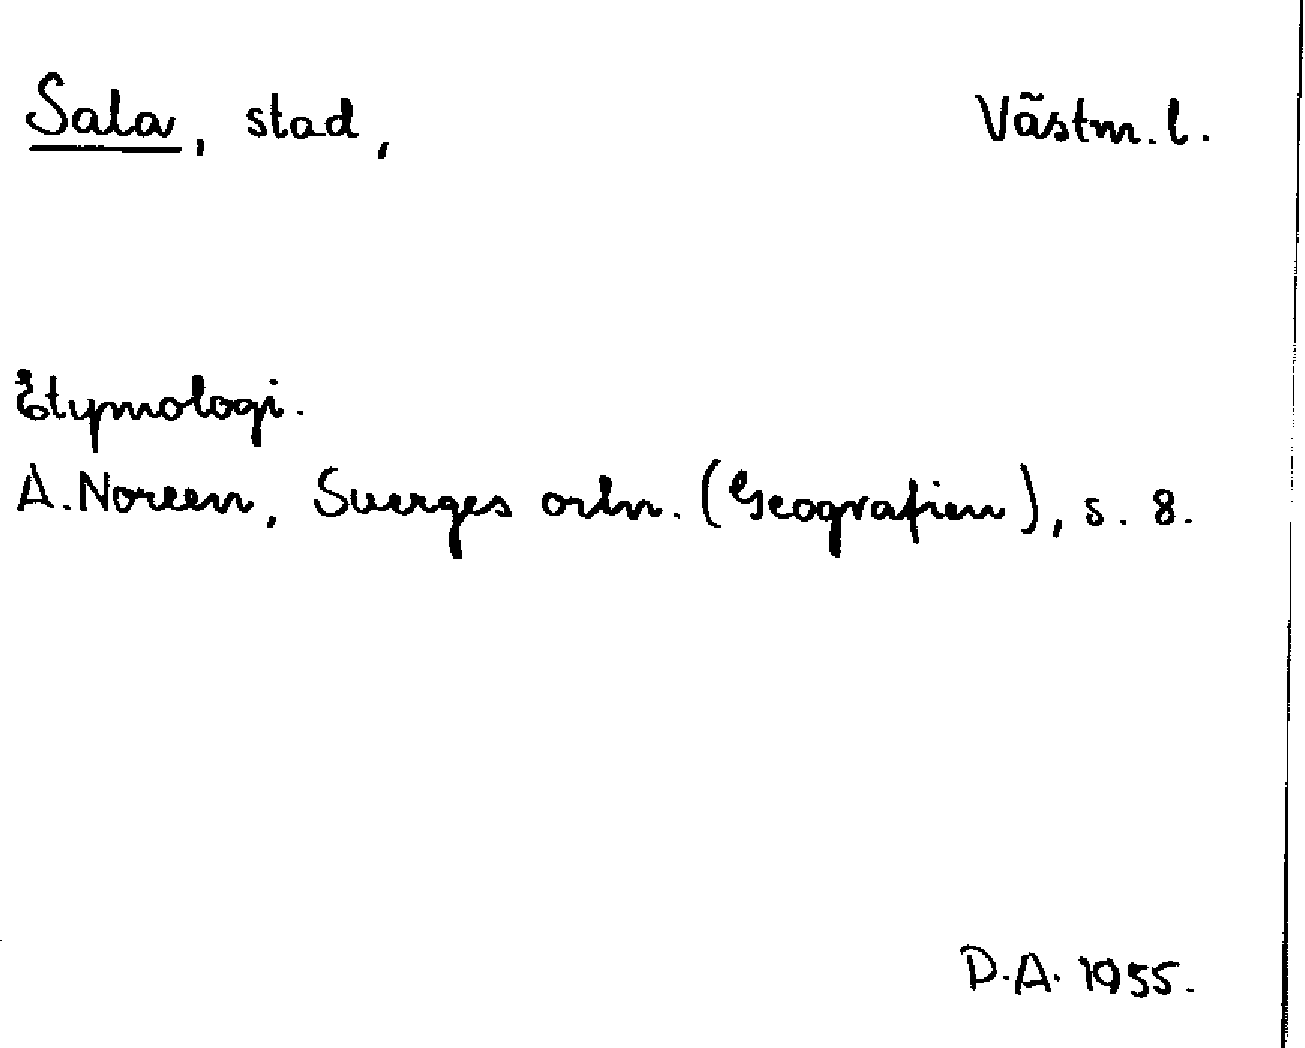 Sala, stad, Västm. l.
Etymologi.
A. Noreen, Sverges ortn. (Geografien), s. 8.
D.A. 1955.